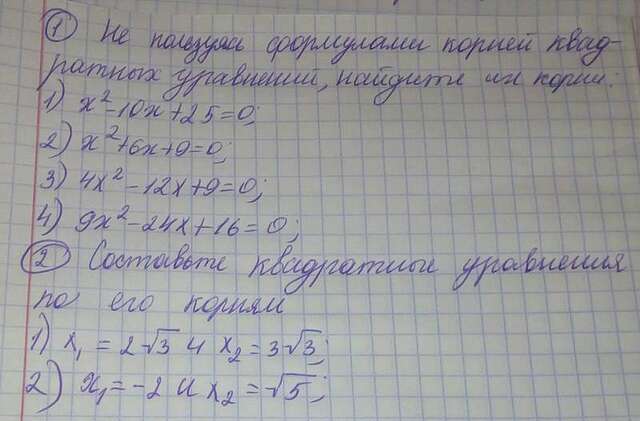 ① Не пользуясь формулами корней квад-
ратных уравнений, найдите их корни:
1) x² - 10x + 25 = 0;
2) x² + 6x + 9 = 0;
3) 4x² - 12x + 9 = 0;
4) 9x² - 24x + 16 = 0;
② Составьте квадратные уравнения
по его корням
1) x₁ = 2√3 и x₂ = 3√3;
2) x₁ = -2 и x₂ = √5;